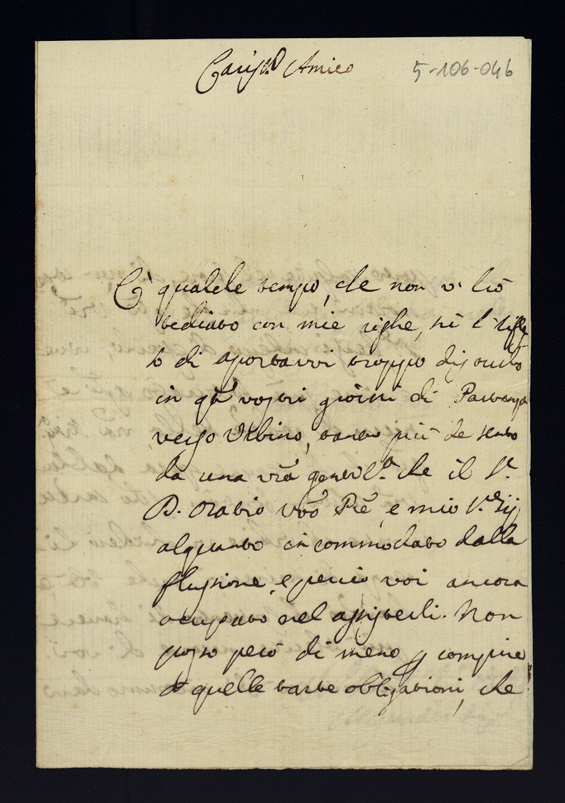 Cariss.o Amico
5-106-046
E' qualche tempo, che non v'hò
tediato con mie righe, sù l'
to di aportarvi troppo disturbo
in q.ti vostri giorni di Partenza
verso Urbino, tanto più che sento
da una vr̃a gentil.a che il S.r
D. Oratio vr̃o P̃re, e mio S.re sij
alquanto incommodato dalla
flusione, e perciò voi ancora
occupato nel assisterli. Non
posso però di meno p compire
a quelle tante obligationi, che